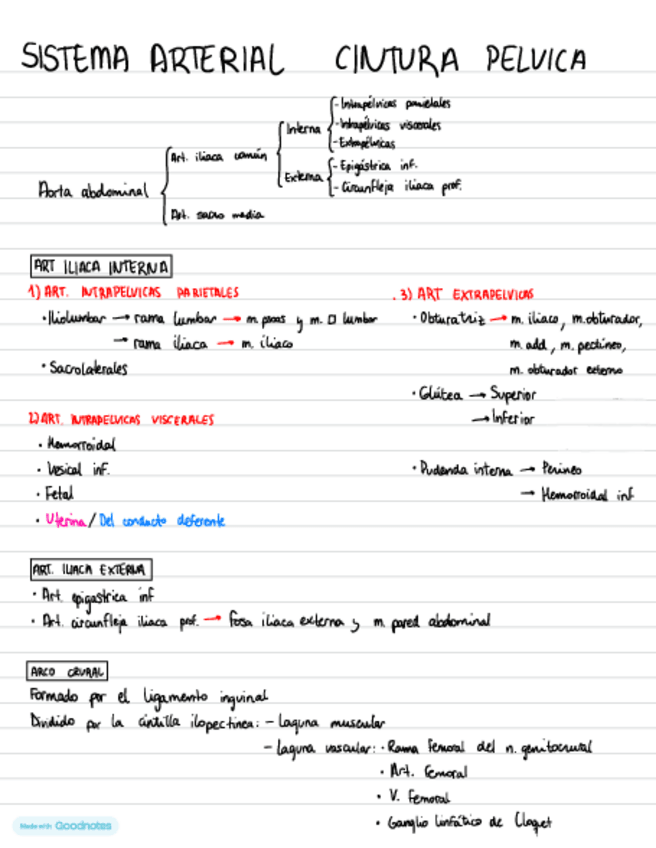 SISTEMA ARTERIAL CINTURA PELVICA
Aorta abdominal
Art. iliaca común
Interna
- Intrapélvicas parietales
- Intrapélvicas viscerales
- Extrapélvicas
Externa
- Epigástrica inf.
- Circunfleja iliaca prof.
Art. sacro media
ART ILIACA INTERNA
1) ART. INTRAPELVICAS PARIETALES
• Iliolumbar → rama lumbar → m. psoas y m. □ lumbar
→ rama iliaca → m. iliaco
• Sacrolaterales
2) ART. INTRAPELVICAS VISCERALES
• Hemorroidal
• Vesical inf.
• Fetal
• Uterina / Del conducto deferente
3) ART EXTRAPELVICAS
• Obturatriz → m. iliaco, m. obturador,
m. add, m. pectineo,
m. obturador externo
• Glútea → Superior
→ Inferior
• Pudenda interna → Perineo
→ Hemorroidal inf
ART. ILIACA EXTERNA
• Art. epigastrica inf
• Art. circunfleja iliaca prof. → fosa iliaca externa y m. pared abdominal
ARCO CRURAL
Formado por el ligamento inguinal
Dividido por la cintilla ilopectinea: - laguna muscular
- laguna vascular: • Rama femoral del n. genitocrural
• Art. femoral
• V. Femoral
• Ganglio linfático de Cloquet
Made with Goodnotes